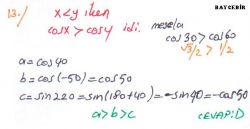 BAYCEBİR
13./ x<y iken
cosx > cosy idi. mesela
cos30 > cos60
√3/2 > 1/2
a = cos40
b = cos(-50) = cos50
c = sin220 = sin(180+40) = -sin40 = -cos50
a>b>c CEVAP:D